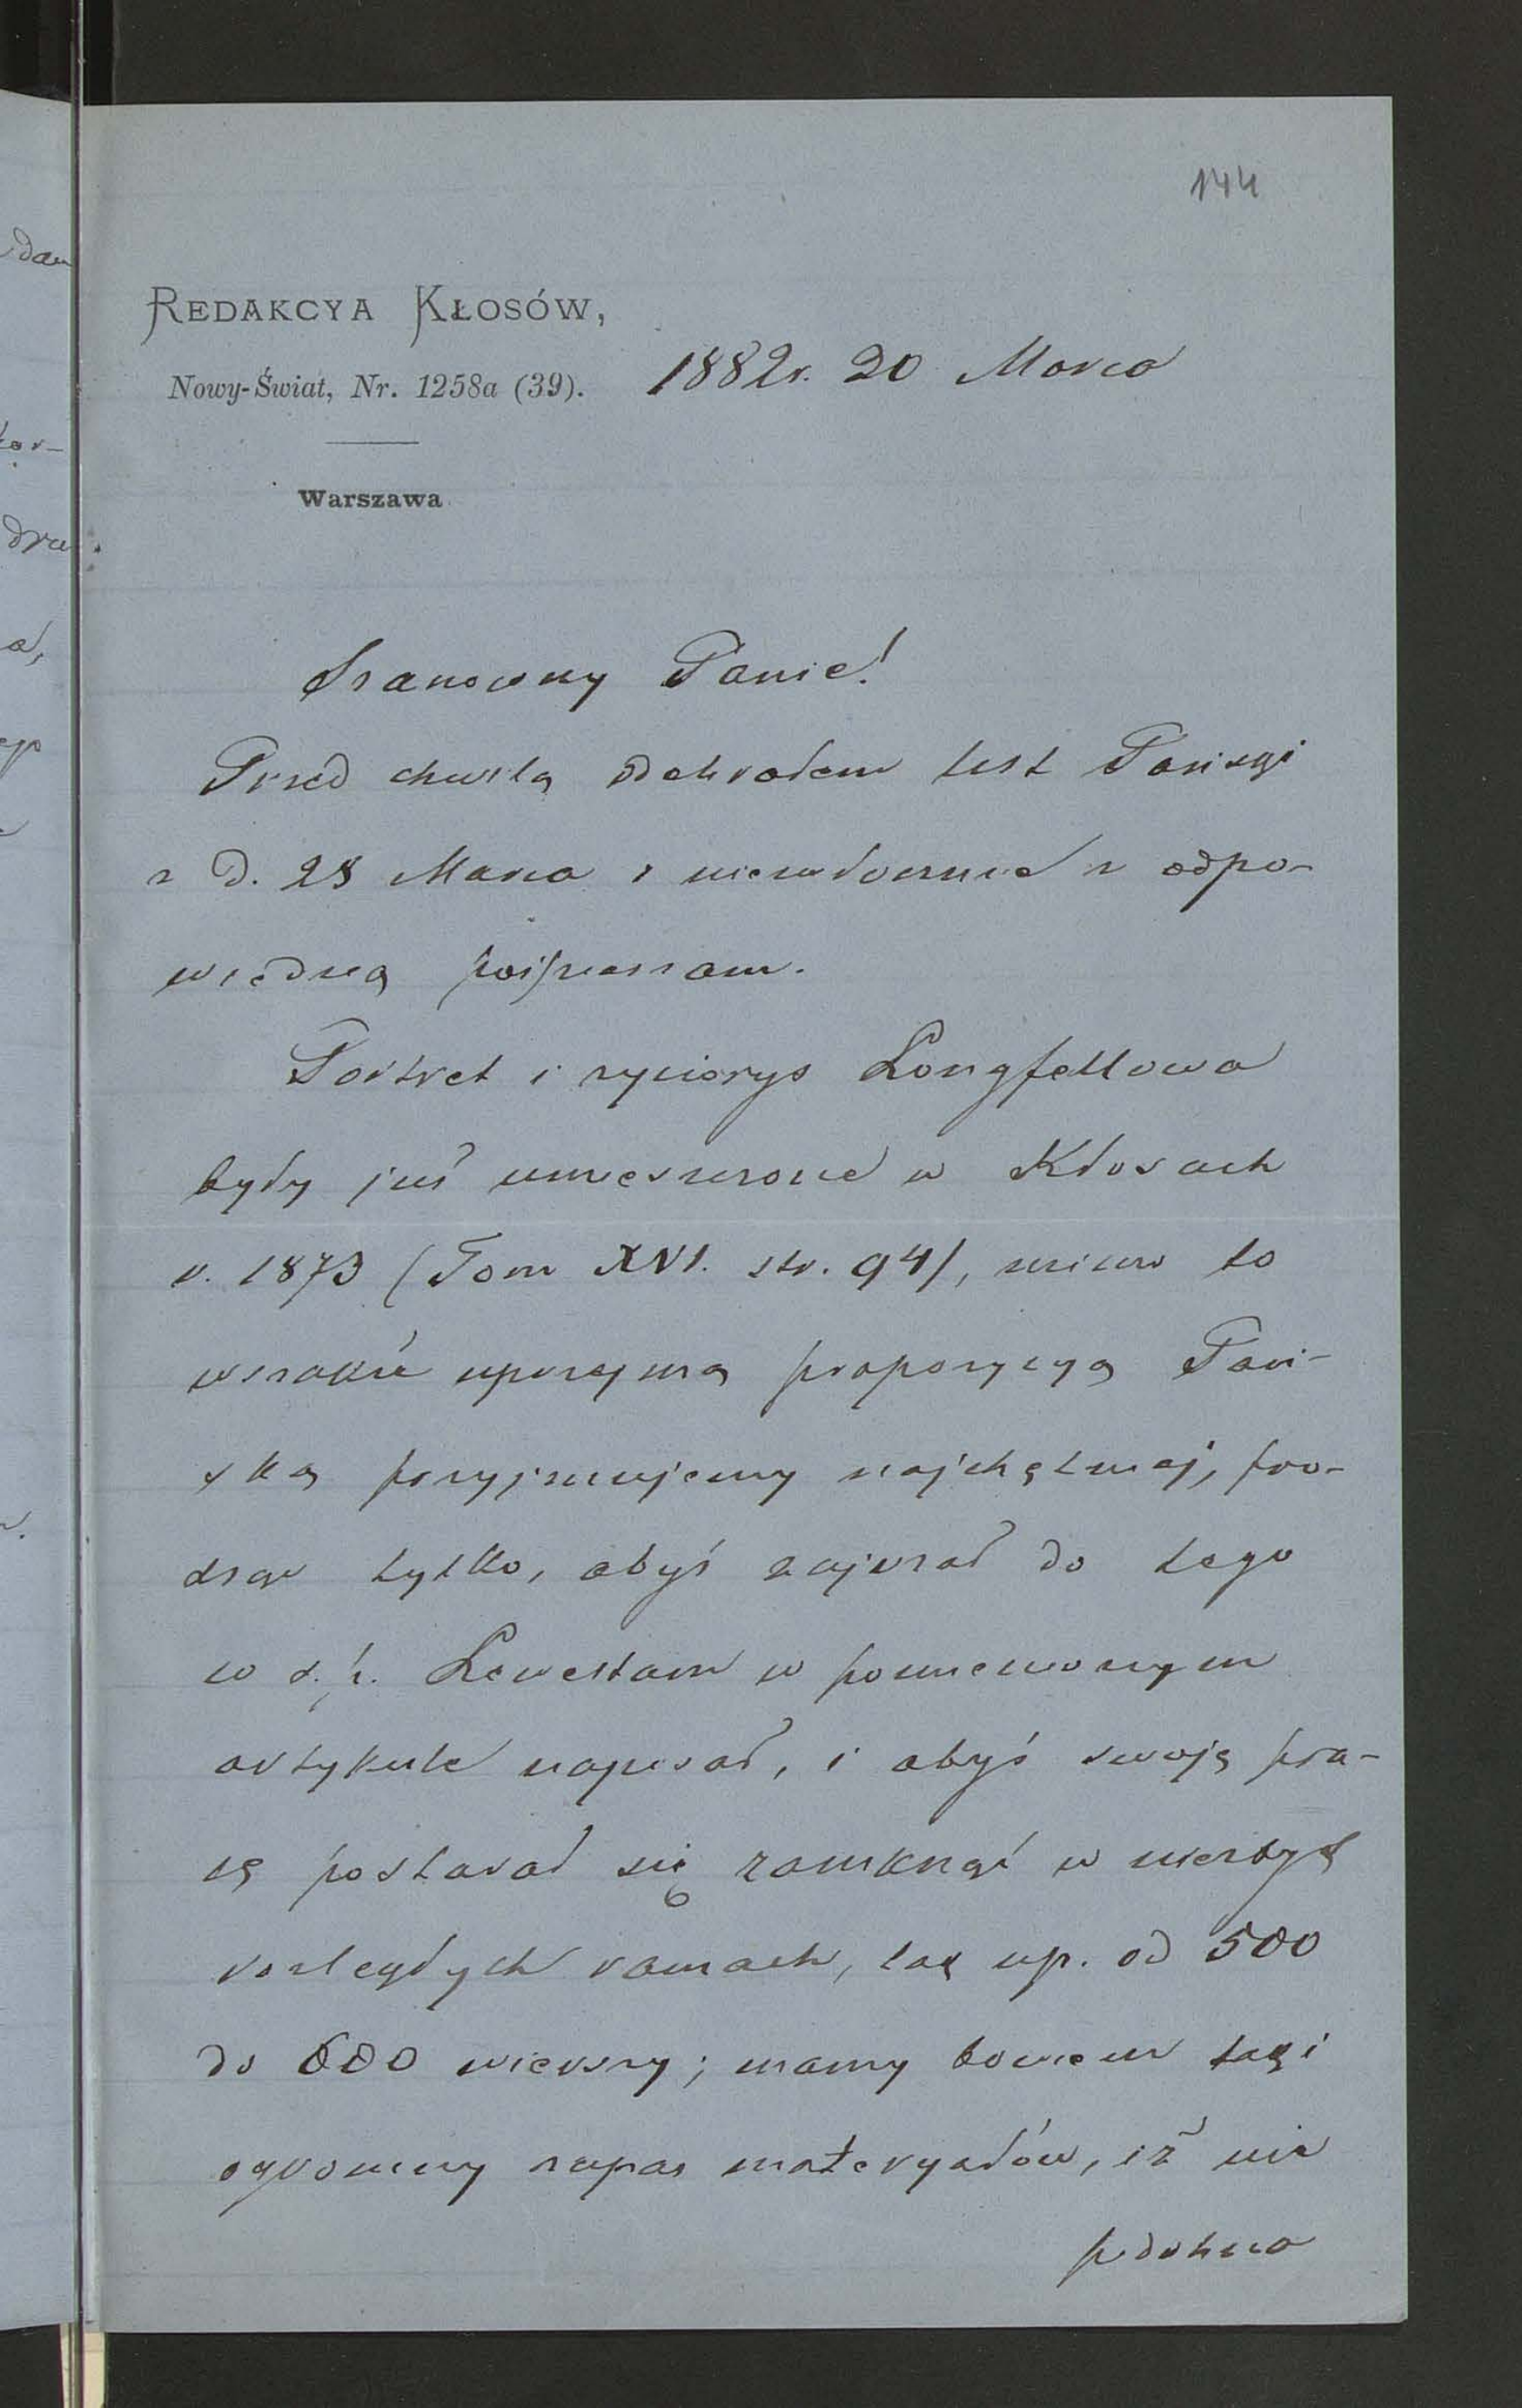 144
REDAKCYA KŁOSÓW,
Nowy-Świat, Nr. 1258a (39).
1882r. 20 Marca
Warszawa
Szanowny Panie!
Przed chwilą odebrałem list Pański
z d. 28 Marca i niezwłocznie z odpo-
wiedzią pośpieszam.
Portret i życiorys Longfellowa
były już umieszczone w Kłosach
r. 1873 (Tom XVI. str. 94), mimo to
wszakże uprzejmą propozycyą Pań-
ską przyjmujemy najchętniej, pro-
sząc tylko, abyś zajrzał do tego
co ś. p. Lewestam w pomienionym
artykule napisał, i abyś swoję pra-
cę postarał się zamknąć w niezbyt
rozległych ramach, tak np. od 500
do 600 wierszy; mamy bowiem taki
ogromny zapas materyałów, iż nie